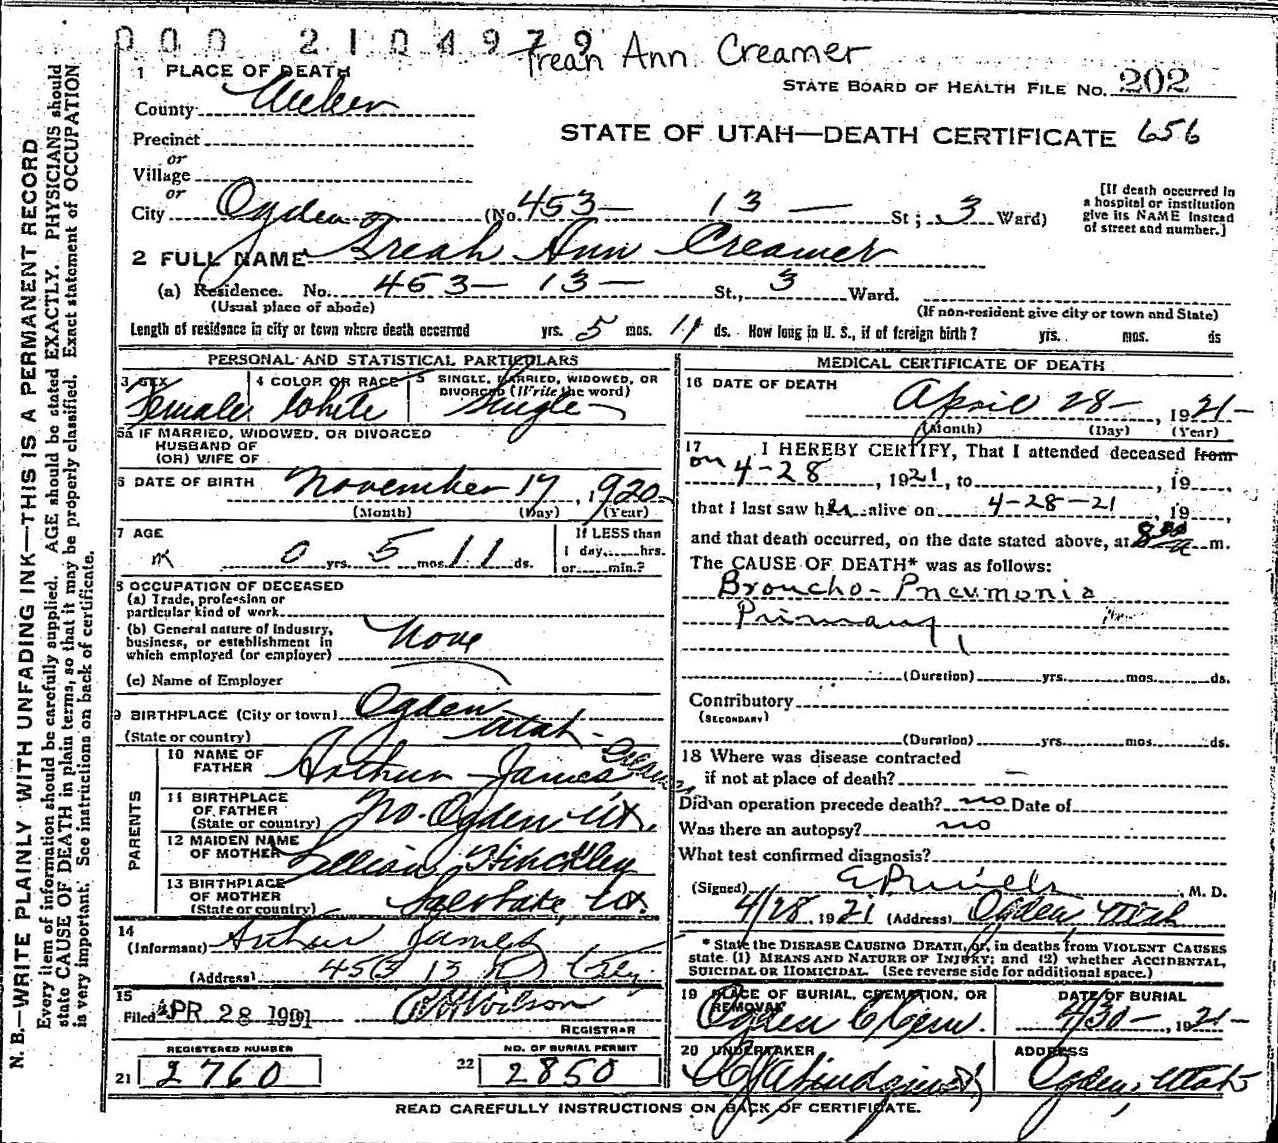 000 2104979
Treah Ann Creamer
1 PLACE OF DEATH
STATE BOARD OF HEALTH FILE NO. 202
County Weber
STATE OF UTAH—DEATH CERTIFICATE 656
Precinct
or
Village
or
City Ogden (No. 453— 13 — St; 3 Ward)
[If death occurred in
a hospital or institution
give its NAME instead
of street and number.]
2 FULL NAME Treah Ann Creamer
(a) Residence. No. 453— 13— St., 3 Ward.
(Usual place of abode)
(If non-resident give city or town and State)
Length of residence in city or town where death occurred yrs. 5 mos. 11 ds. How long in U. S., if of foreign birth? yrs. mos. ds
PERSONAL AND STATISTICAL PARTICULARS
3 SEX Female
4 COLOR OR RACE White
5 SINGLE, MARRIED, WIDOWED, OR
DIVORCED (Write the word)
Single
5a IF MARRIED, WIDOWED, OR DIVORCED
HUSBAND OF
(OR) WIFE OF
6 DATE OF BIRTH November 17, 1920
(Month) (Day) (Year)
7 AGE
0 yrs. 5 mos. 11 ds.
If LESS than
1 day,......hrs.
or......min.?
8 OCCUPATION OF DECEASED
(a) Trade, profession or
particular kind of work.
(b) General nature of industry,
business, or establishment in
which employed (or employer)
None
(c) Name of Employer
9 BIRTHPLACE (City or town) Ogden
(State or country) Utah -
PARENTS
10 NAME OF
FATHER Arthur James Creamer
11 BIRTHPLACE
OF FATHER
(State or country) No. Ogden Ut.
12 MAIDEN NAME
OF MOTHER Lillian Hinckley
13 BIRTHPLACE
OF MOTHER
(State or country) Salt Lake, Ut.
14
(Informant) Arthur James
(Address) 453 13
15
Filed APR 28 1921 Wilson
REGISTRAR
REGISTERED NUMBER
21 2760
NO. OF BURIAL PERMIT
22 2850
MEDICAL CERTIFICATE OF DEATH
16 DATE OF DEATH
April 28—, 1921—
(Month) (Day) (Year)
17 I HEREBY CERTIFY, That I attended deceased from
on 4-28, 1921, to , 19
that I last saw her alive on 4-28-21, 19
and that death occurred, on the date stated above, at 8 30 a m.
The CAUSE OF DEATH* was as follows:
Broncho-Pneumonia
Primary
(Duration) yrs. mos. ds.
Contributory
(SECONDARY)
(Duration) yrs. mos. ds.
18 Where was disease contracted
if not at place of death? —
Did an operation precede death? no Date of
Was there an autopsy? no
What test confirmed diagnosis?
(Signed) M. D.
4/28 1921 (Address) Ogden, Utah
* State the DISEASE CAUSING DEATH, or, in deaths from VIOLENT CAUSES
state (1) MEANS AND NATURE OF INJURY; and (2) whether ACCIDENTAL,
SUICIDAL OR HOMICIDAL. (See reverse side for additional space.)
19 PLACE OF BURIAL, CREMATION, OR
REMOVAL
Ogden C Cem.
DATE OF BURIAL
4/30—, 1921—
20 UNDERTAKER
ADDRESS
Ogden, Utah
READ CAREFULLY INSTRUCTIONS ON BACK OF CERTIFICATE.
N. B.—WRITE PLAINLY WITH UNFADING INK—THIS IS A PERMANENT RECORD
Every item of information should be carefully supplied. AGE should be stated EXACTLY. PHYSICIANS should
state CAUSE OF DEATH in plain terms, so that it may be properly classified. Exact statement of OCCUPATION
is very important. See instructions on back of certificate.